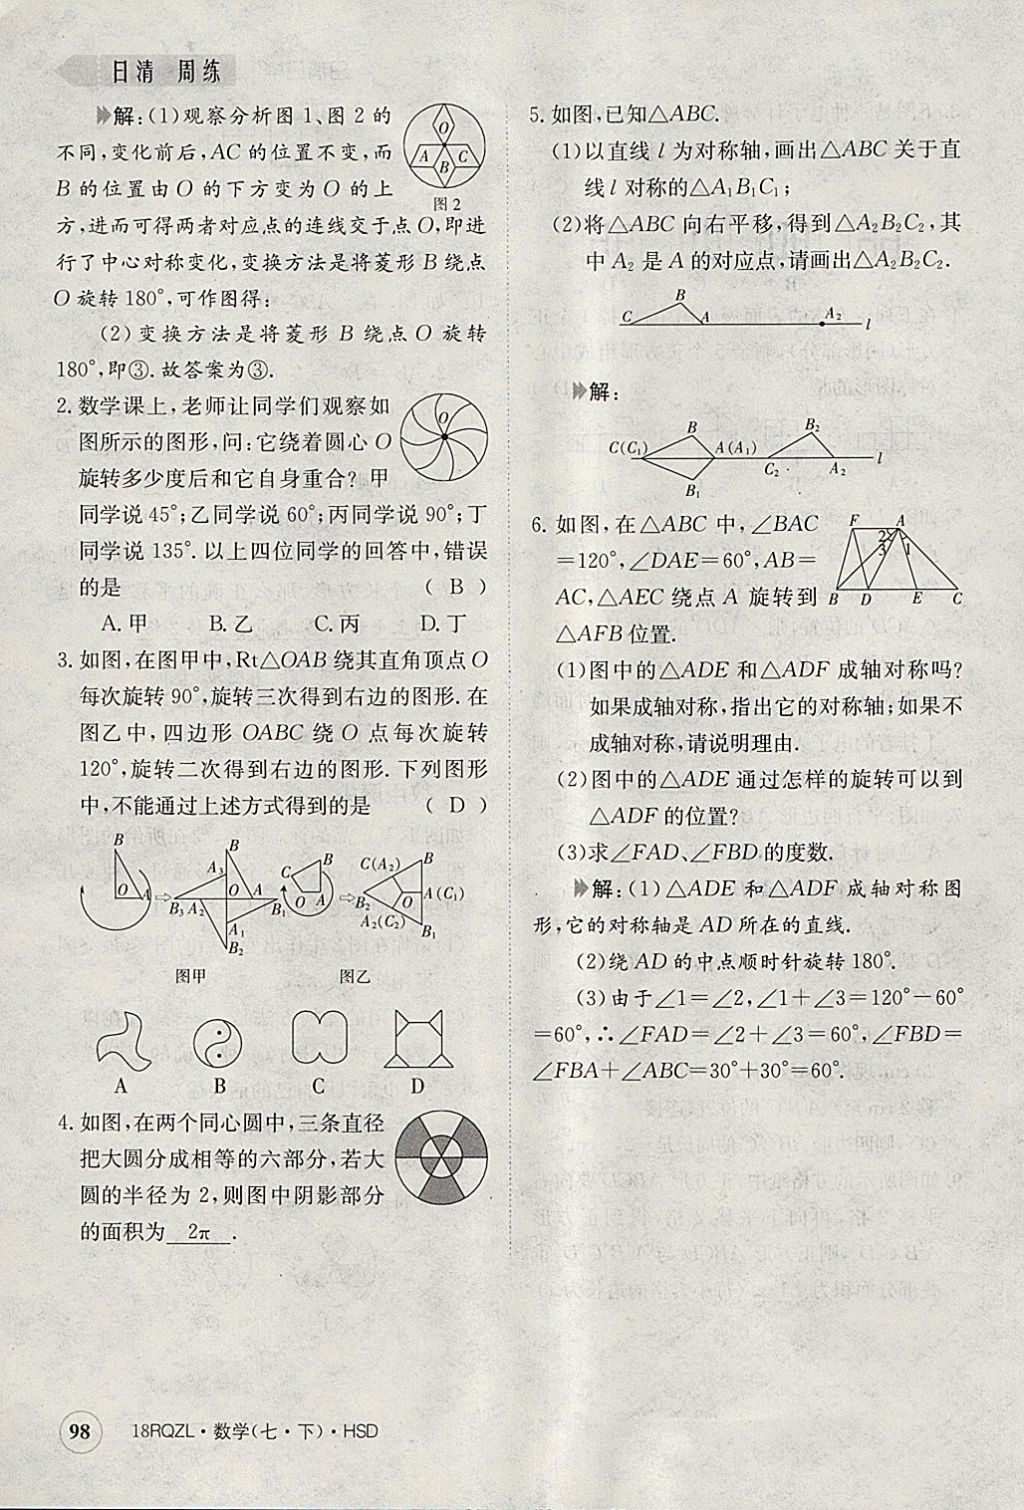 日清 周练
解:(1)观察分析图1、图2的
不同,变化前后,AC的位置不变,而
B的位置由O的下方变为O的上
方,进而可得两者对应点的连线交于点O,即进
行了中心对称变化,变换方法是将菱形B绕点
O旋转180°,可作图得:
(2)变换方法是将菱形B绕点O旋转
180°,即③.故答案为③.
O
A B C
图2
2. 数学课上,老师让同学们观察如
图所示的图形,问:它绕着圆心O
旋转多少度后和它自身重合? 甲
同学说45°;乙同学说60°;丙同学说90°;丁
同学说135°.以上四位同学的回答中,错误
的是 ( B )
A. 甲 B. 乙 C. 丙 D. 丁
O
3. 如图,在图甲中,Rt△OAB绕其直角顶点O
每次旋转90°,旋转三次得到右边的图形.在
图乙中,四边形OABC绕O点每次旋转
120°,旋转二次得到右边的图形.下列图形
中,不能通过上述方式得到的是 ( D )
B O A
B A3 O A B3 A2 B1 A1 B2
C B O A
C(A2) B B2 O A(C1) A2(C2) B1
图甲 图乙
A B C D
4. 如图,在两个同心圆中,三条直径
把大圆分成相等的六部分,若大
圆的半径为2,则图中阴影部分
的面积为 2π .
5. 如图,已知△ABC.
(1)以直线l为对称轴,画出△ABC关于直
线l对称的△A1B1C1;
(2)将△ABC向右平移,得到△A2B2C2,其
中A2是A的对应点,请画出△A2B2C2.
B
C A A2 l
解:
B B2
C(C1) A(A1) l
C2 A2
B1
6. 如图,在△ABC中,∠BAC
=120°,∠DAE=60°,AB=
AC,△AEC绕点A旋转到
△AFB位置.
F A
2 3 1
B D E C
(1)图中的△ADE和△ADF成轴对称吗?
如果成轴对称,指出它的对称轴;如果不
成轴对称,请说明理由.
(2)图中的△ADE通过怎样的旋转可以到
△ADF的位置?
(3)求∠FAD、∠FBD的度数.
解:(1)△ADE和△ADF成轴对称图
形,它的对称轴是AD所在的直线.
(2)绕AD的中点顺时针旋转180°.
(3)由于∠1=∠2,∠1+∠3=120°-60°
=60°,∴∠FAD=∠2+∠3=60°,∠FBD=
∠FBA+∠ABC=30°+30°=60°.
98 18RQZL·数学(七·下)·HSD